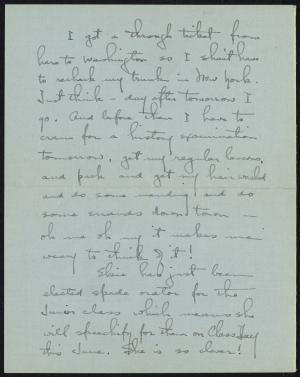 I got a through ticket from
here to Washington so I shan't have
to recheck my trunk in New York.
Just think - day after tomorrow I
go. And before then I have to
cram for a history examination
tomorrow, get my regular lessons,
and pack and get my hair washed
and do some mending and do
some errands down town -
oh me oh my it makes me
weary to think of it!
Elsie has just been
elected spade orator for the
Junior class which means she
will speechify for them on Class Day
this June. She is so clever!